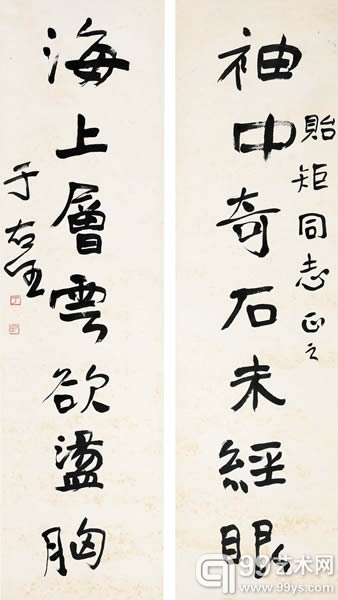 袖中奇石未經眼
貽矩同志正之
海上層雲欲盪胸
于右任
99艺术网
www.99ys.com